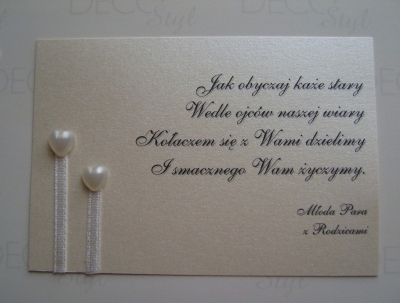 DECO
Styl
Jak obyczaj każe stary
Wedle ojców naszej wiary
Kołaczem się z Wami dzielimy
I smacznego Wam życzymy.
Młoda Para
z Rodzicami
DECO
Styl